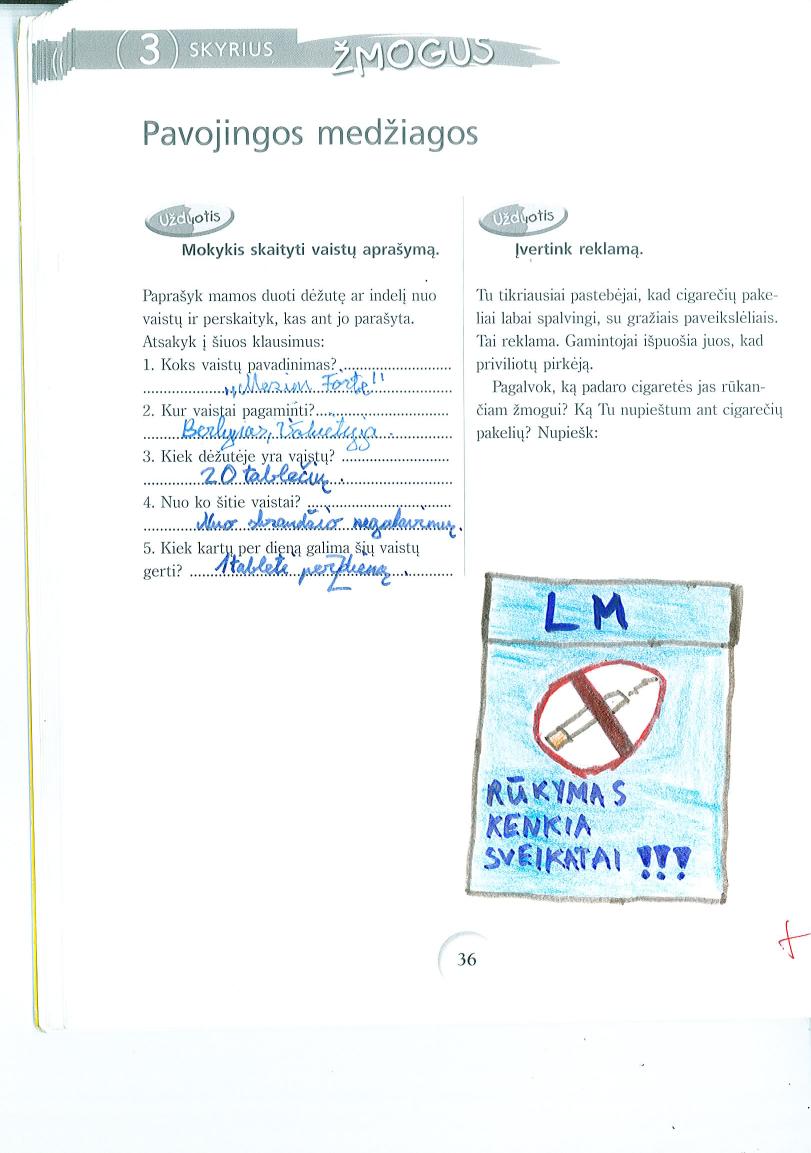 3 SKYRIUS ŽMOGUS
Pavojingos medžiagos
Užduotis
Mokykis skaityti vaistų aprašymą.
Paprašyk mamos duoti dėžutę ar indelį nuo
vaistų ir perskaityk, kas ant jo parašyta.
Atsakyk į šiuos klausimus:
1. Koks vaistų pavadinimas?
„Mezim Forte"
2. Kur vaistai pagaminti?
Berlynas, Vokietija.
3. Kiek dėžutėje yra vaistų?
20 tablečių.
4. Nuo ko šitie vaistai?
Nuo skrandžio negalavimų.
5. Kiek kartų per dieną galima šių vaistų
gerti? 1 tabletė per dieną.
Užduotis
Įvertink reklamą.
Tu tikriausiai pastebėjai, kad cigarečių pake-
liai labai spalvingi, su gražiais paveikslėliais.
Tai reklama. Gamintojai išpuošia juos, kad
priviliotų pirkėją.
Pagalvok, ką padaro cigaretės jas rūkan-
čiam žmogui? Ką Tu nupieštum ant cigarečių
pakelių? Nupiešk:
LM
RŪKYMAS
KENKIA
SVEIKATAI !!!
36